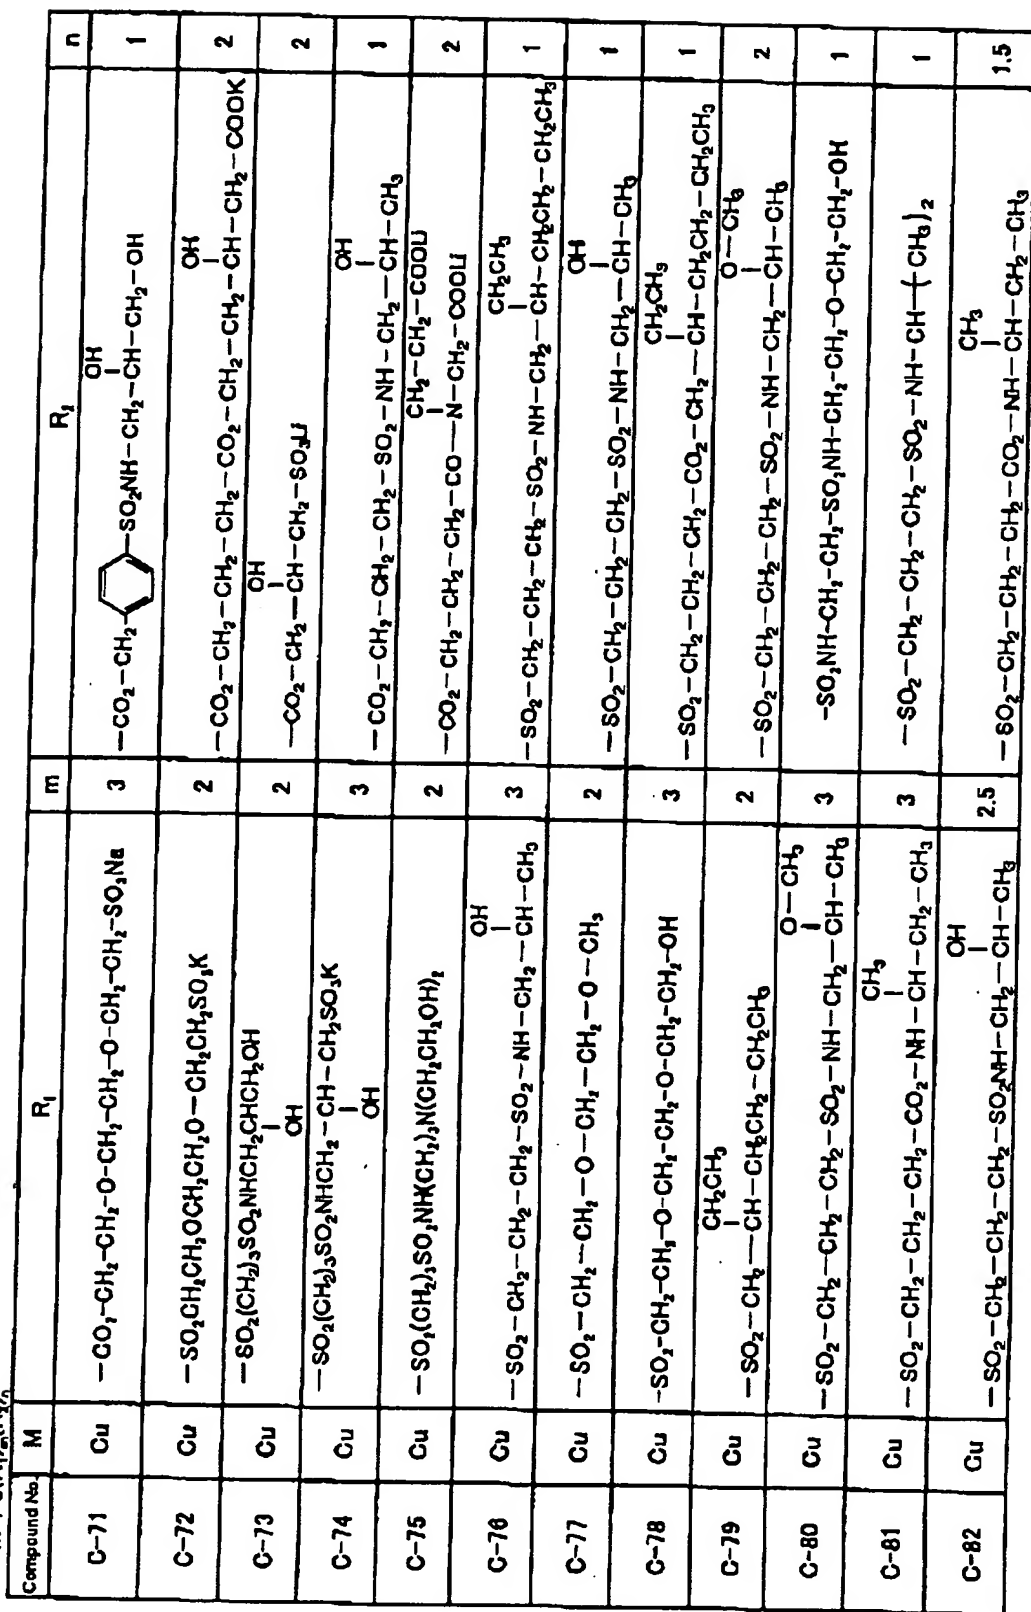 Compound No. M R₁ m R₂ n
C-71 Cu —CO₂-CH₂-CH₂-CH₂-O-CH₂-CH₂-O-CH₂-CH₂-SO₃Na 3 —CO₂-CH₂-⌬-SO₂NH-CH₂-CH(OH)-CH₂-OH 1
C-72 Cu —SO₂CH₂CH₂OCH₂CH₂O—CH₂CH₂SO₃K 2 —CO₂-CH₂-CH₂-CO₂-CH₂-CH₂-CH(OH)-CH₂-COOK 2
C-73 Cu —SO₂(CH₂)₃SO₂NHCH₂CH(OH)CH₂OH 2 —CO₂-CH₂-CH(OH)-CH₂-SO₃Li 2
C-74 Cu —SO₂(CH₂)₃SO₂NHCH₂-CH(OH)-CH₂SO₃K 3 —CO₂-CH₂-CH₂-CH₂-SO₂-NH-CH₂-CH(OH)-CH₃ 1
C-75 Cu —SO₂(CH₂)₃SO₂NH(CH₂)₃N(CH₂CH₂OH)₂ 2 —CO₂-CH₂-CH₂-CH₂-CO-N(CH₂-CH₂-COOLi)-CH₂-COOLi 2
C-76 Cu —SO₂-CH₂-CH₂-CH₂-SO₂-NH-CH₂-CH(OH)-CH₃ 3 —SO₂-CH₂-CH₂-CH₂-SO₂-NH-CH₂-CH(CH₂CH₃)-CH₂CH₂-CH₂CH₃ 1
C-77 Cu —SO₂-CH₂-CH₂-O-CH₂-CH₂-O-CH₃ 2 —SO₂-CH₂-CH₂-CH₂-SO₂-NH-CH₂-CH(OH)-CH₃ 1
C-78 Cu —SO₂-CH₂-CH₂-O-CH₂-CH₂-O-CH₂-CH₂-OH 3 —SO₂-CH₂-CH₂-CH₂-CO₂-CH₂-CH(CH₂CH₃)-CH₂CH₂-CH₂CH₃ 1
C-79 Cu —SO₂-CH₂-CH(CH₂CH₃)-CH₂CH₂-CH₂CH₃ 2 —SO₂-CH₂-CH₂-CH₂-SO₂-NH-CH₂-CH(O-CH₃)-CH₃ 2
C-80 Cu —SO₂-CH₂-CH₂-CH₂-SO₂-NH-CH₂-CH(O-CH₃)-CH₃ 3 -SO₂NH-CH₂-CH₂-SO₂NH-CH₂-CH₂-O-CH₂-CH₂-OH 1
C-81 Cu —SO₂-CH₂-CH₂-CH₂-CO₂-NH-CH(CH₃)-CH₂-CH₃ 3 —SO₂-CH₂-CH₂-CH₂-SO₂-NH-CH-(CH₃)₂ 1
C-82 Cu —SO₂-CH₂-CH₂-CH₂-SO₂NH-CH₂-CH(OH)-CH₃ 2.5 —SO₂-CH₂-CH₂-CH₂-CO₂-NH-CH(CH₃)-CH₂-CH₃ 1.5